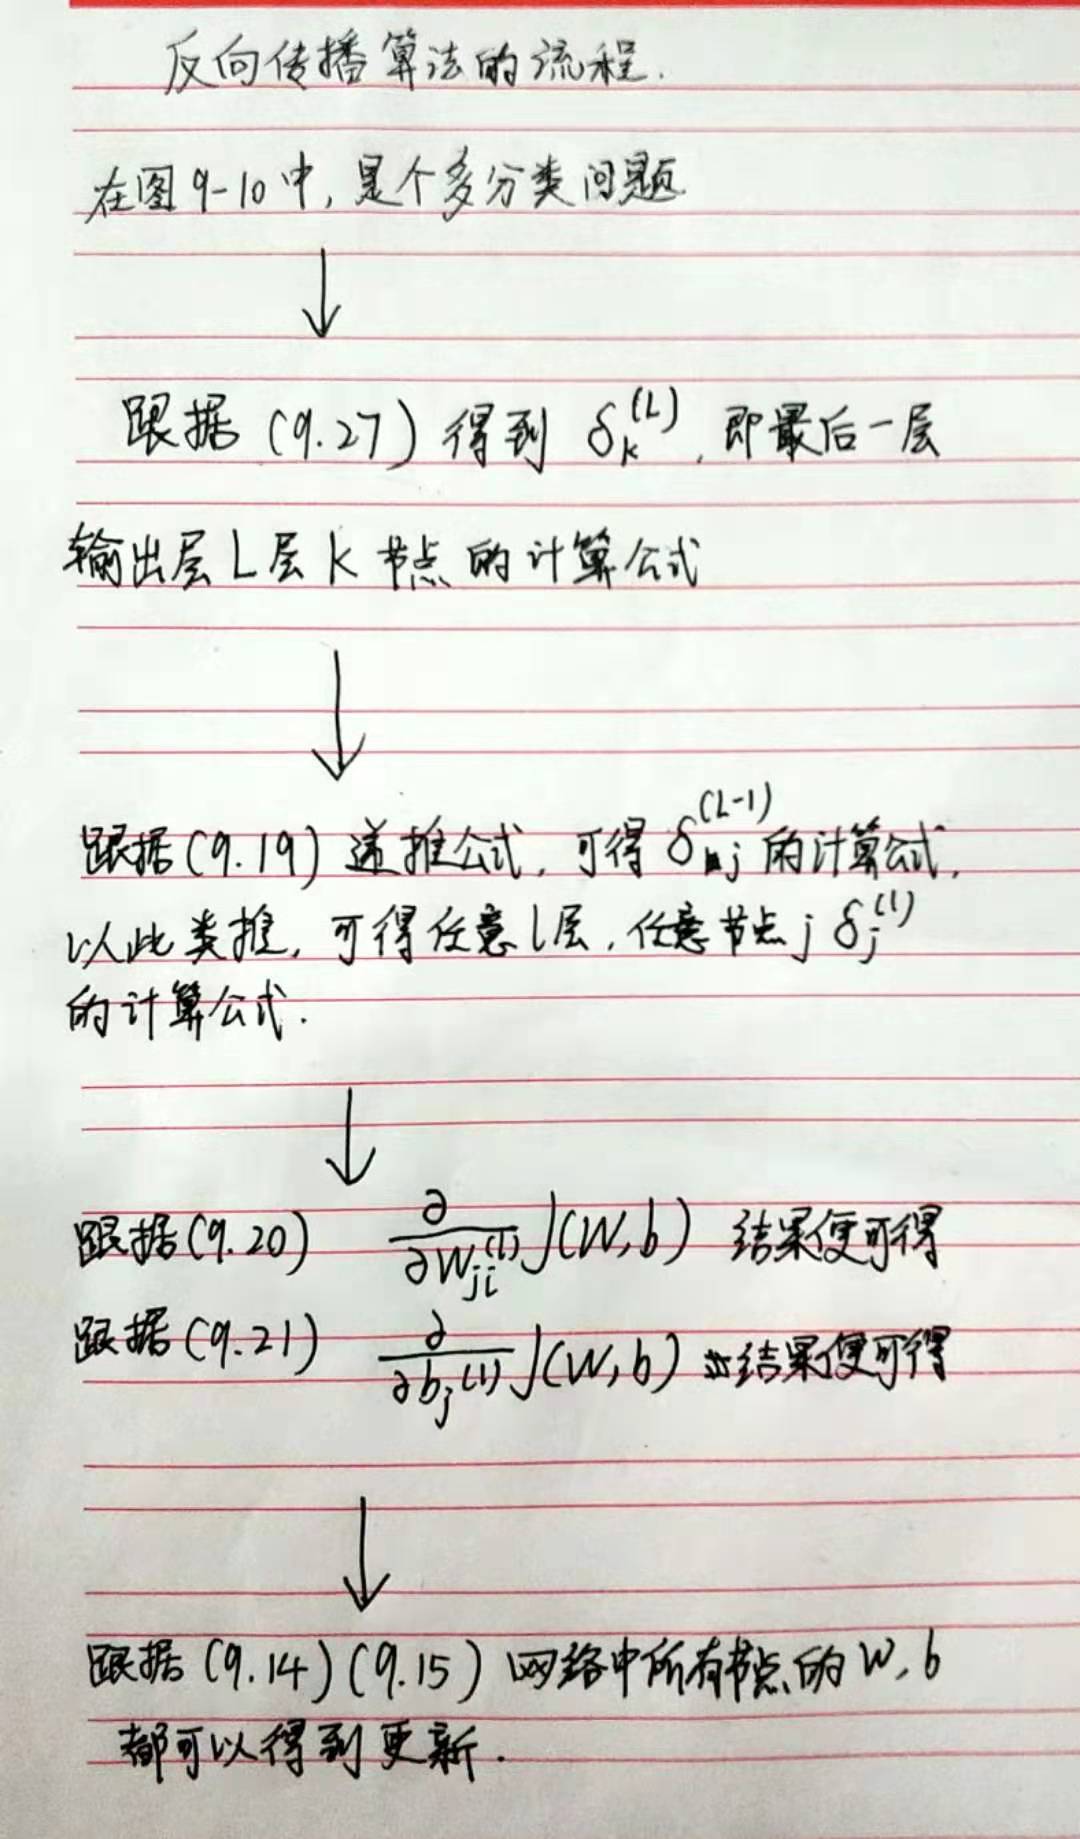 反向传播算法的流程.
在图9-10中,是个多分类问题
跟据(9.27)得到 δₖ⁽ᴸ⁾,即最后一层
输出层L层K节点的计算公式
跟据(9.19)递推公式,可得 δⱼ⁽ᴸ⁻¹⁾ 的计算公式,
以此类推,可得任意l层,任意节点j δⱼ⁽ˡ⁾
的计算公式.
跟据(9.20) ∂/∂Wⱼᵢ⁽ˡ⁾ J(W,b) 结果便可得
跟据(9.21) ∂/∂bⱼ⁽ˡ⁾ J(W,b) 结果便可得
跟据(9.14)(9.15)网络中所有节点的W,b
都可以得到更新.